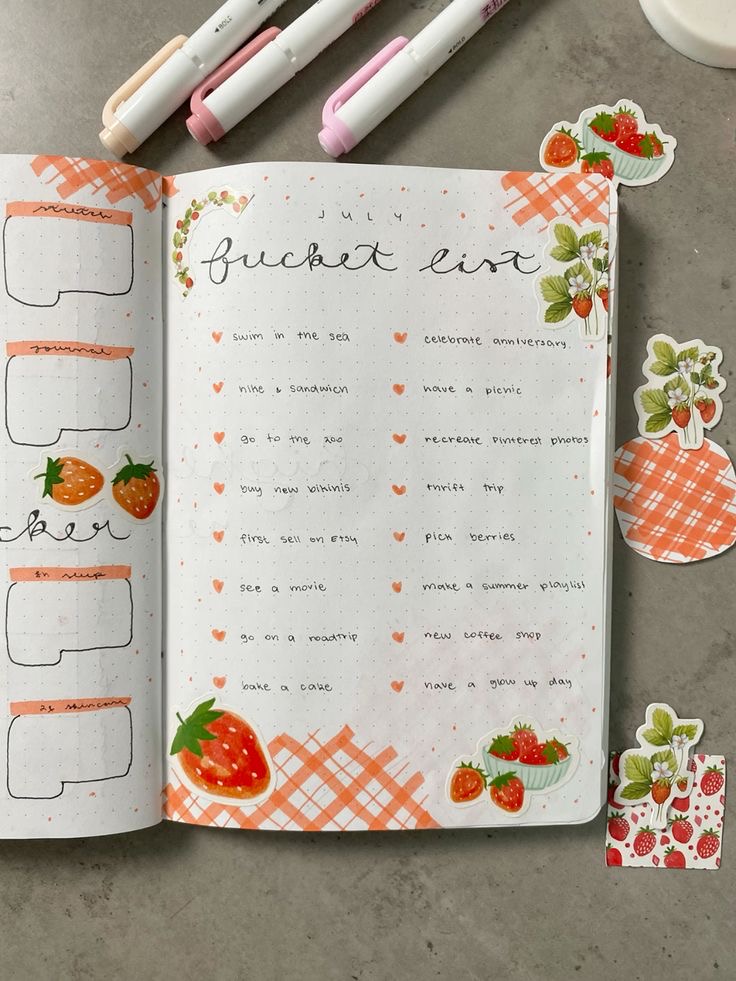 BOLD
BOLD
BOLD
stretch
journal
cker
8h sleep
2x skincare
JULY
bucket list
swim in the sea
hike & sandwich
go to the zoo
buy new bikinis
first sell on Etsy
see a movie
go on a roadtrip
bake a cake
celebrate anniversary
have a picnic
recreate Pinterest photos
thrift trip
pick berries
make a summer playlist
new coffee shop
have a glow up day